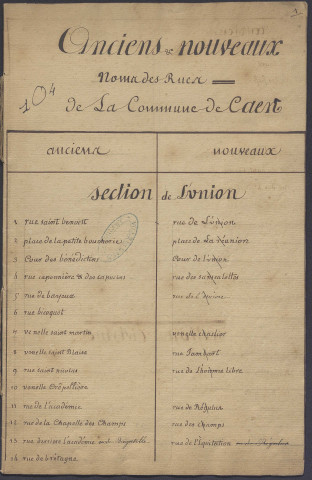 Anciens & nouveaux
Noms des Rues
104
de La Commune de Caen
anciens nouveaux
section de L'union
1 rue saint benoist rue de L'union
2 place de la petite boucherie place de La réunion
3 Cour des bénédictins Cour de L'union
4 rue caponniere & des capucins rue des
5 rue de bayeux rue de
6 rue bicoquet
7 venelle saint martin venelle chaslier
8 venelle saint blaise rue
9 rue saint nicolas rue de L'homme libre
10 venelle Crespellière
11 rue de L'académie rue de Régulus
12 rue de la Chapelle des Champs rue des champs
13 rue derriere L'académie rue de L'équitation
14 rue de bretagne